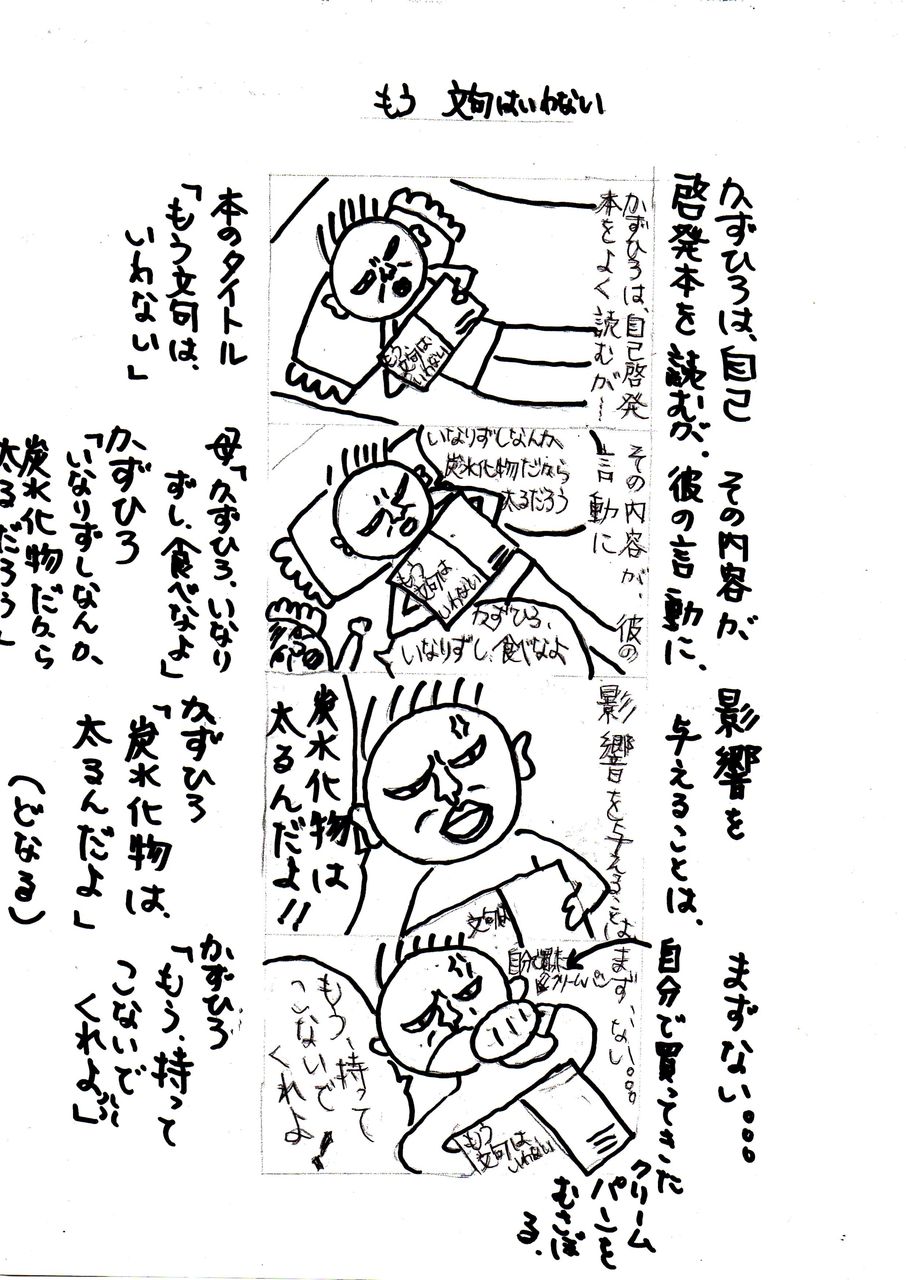 もう 文句はいわない
かずひろは、自己
啓発本を読むが、
本のタイトル
「もう文句は、
いわない」
かずひろは、自己啓発
本をよく読むが…
もう
文句は
いわない
その内容が、
彼の言動に、
その内容が、彼の
言動に
いなりずしなんか、
炭水化物だから
太るだろう
もう
文句は
いわない
かずひろ、
いなりずし、食べなよ
母「かずひろ、いなり
ずし、食べなよ」
かずひろ
「いなりずしなんか、
炭水化物だから
太るだろう」
影響を
与えることは、
影響を与えることは
炭水化物は
太るんだよ!!
文句は
かずひろ
「炭水化物は、
太るんだよ」
(どなる)
まずない。。。
自分で買ってきた
クリーム
パンを
むさぼ
る。
まず、ない。。。
自分で買った
クリームパン
もう、持って
こないで
くれよ
もう
文句は
いわない
かずひろ
「もう、持って
こないで
くれよ」